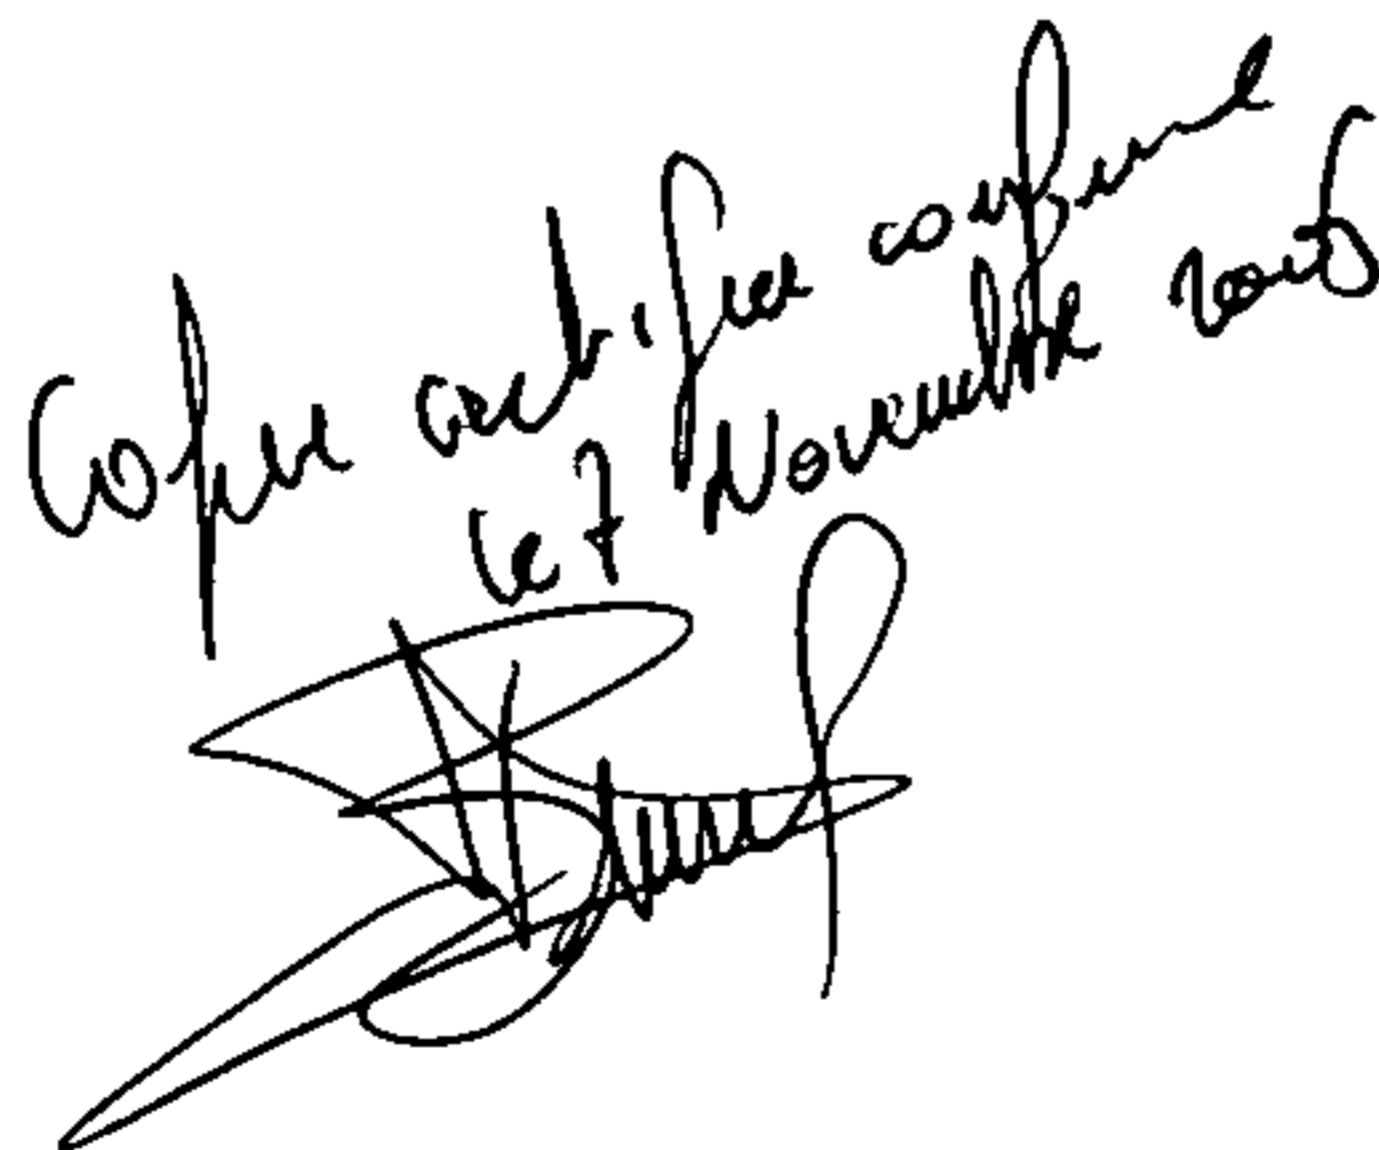 Copie certifiée conforme
le 7 Novembre 2006